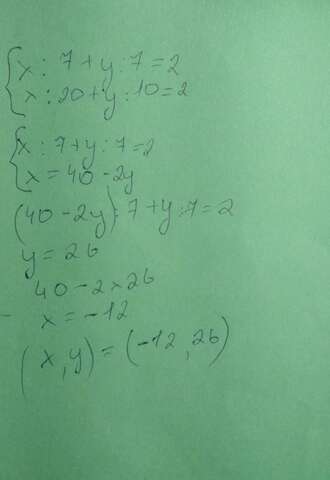 x : 7 + y : 7 = 2
x : 20 + y : 10 = 2
x : 7 + y : 7 = 2
x = 40 - 2y
(40 - 2y) : 7 + y : 7 = 2
y = 26
40 - 2 × 26
x = -12
(x, y) = (-12, 26)